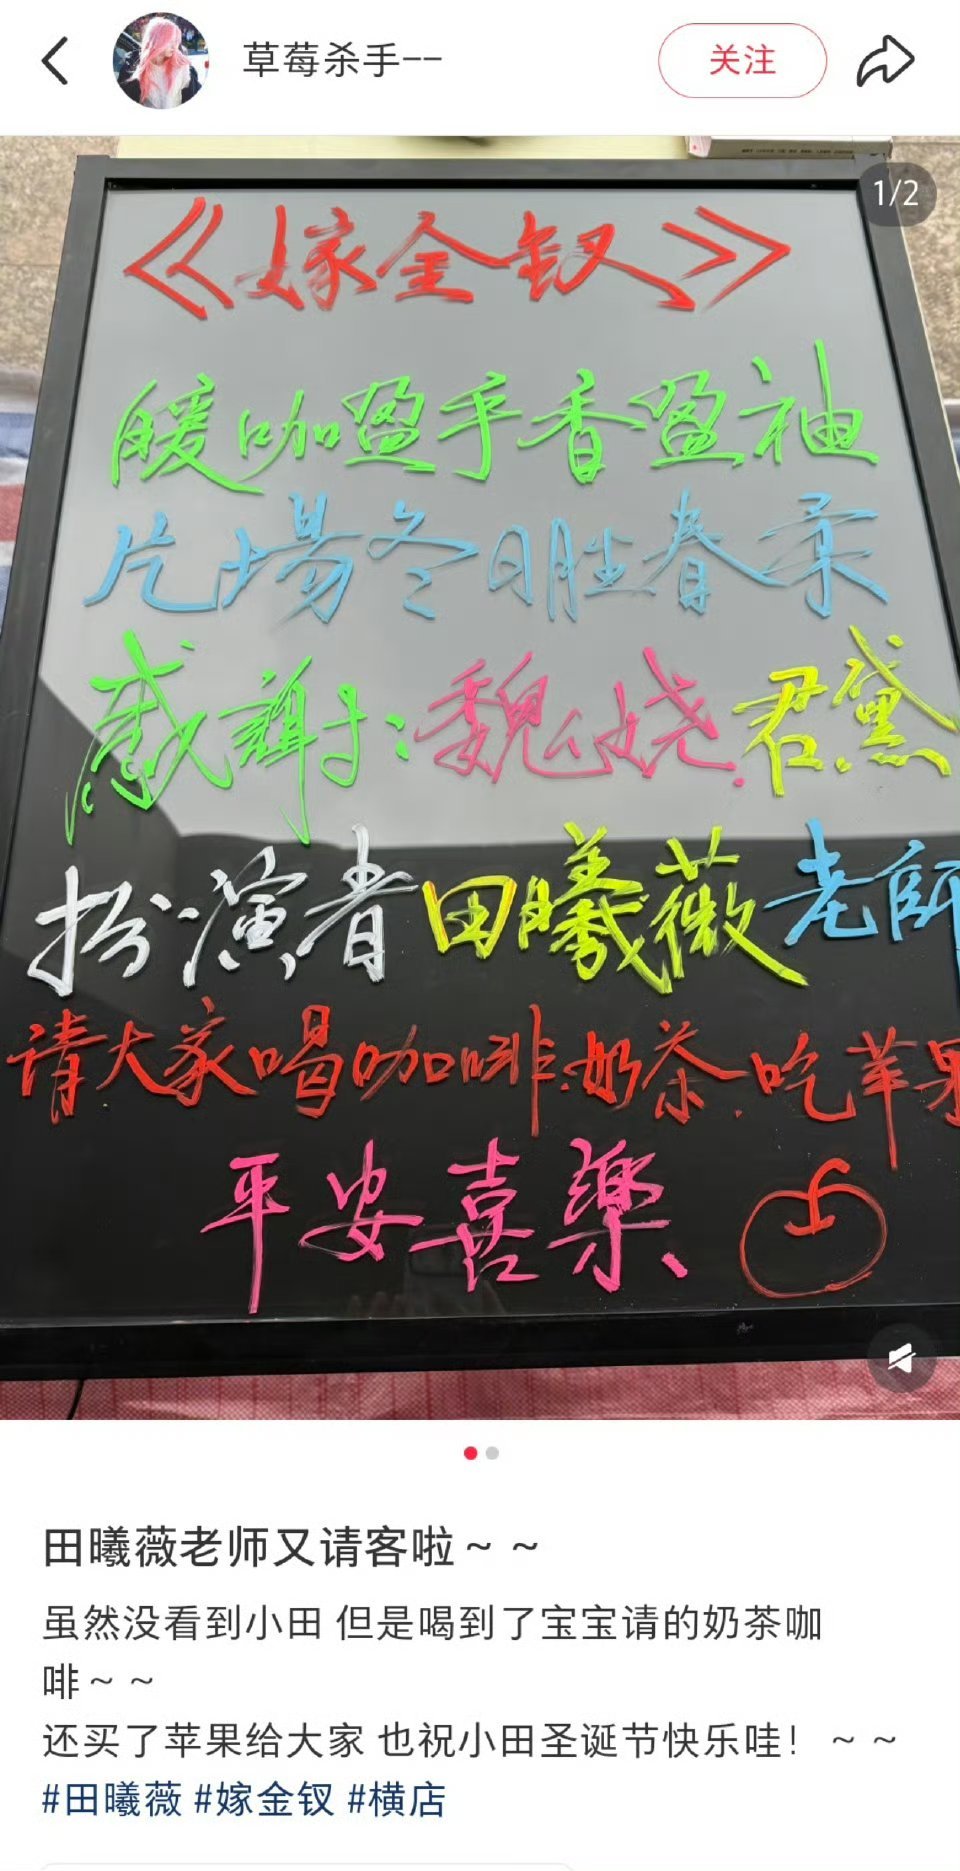 草莓杀手--
关注
1/2
《嫁金钗》
暖咖盈手香盈袖
片場冬日胜春柔
感謝于:魏娆.君黛
扮演者田曦薇老師
请大家喝咖啡.奶茶.吃苹果
平安喜樂、
田曦薇老师又请客啦~ ~
虽然没看到小田 但是喝到了宝宝请的奶茶咖
啡~ ~
还买了苹果给大家 也祝小田圣诞节快乐哇! ~ ~
#田曦薇 #嫁金钗 #横店